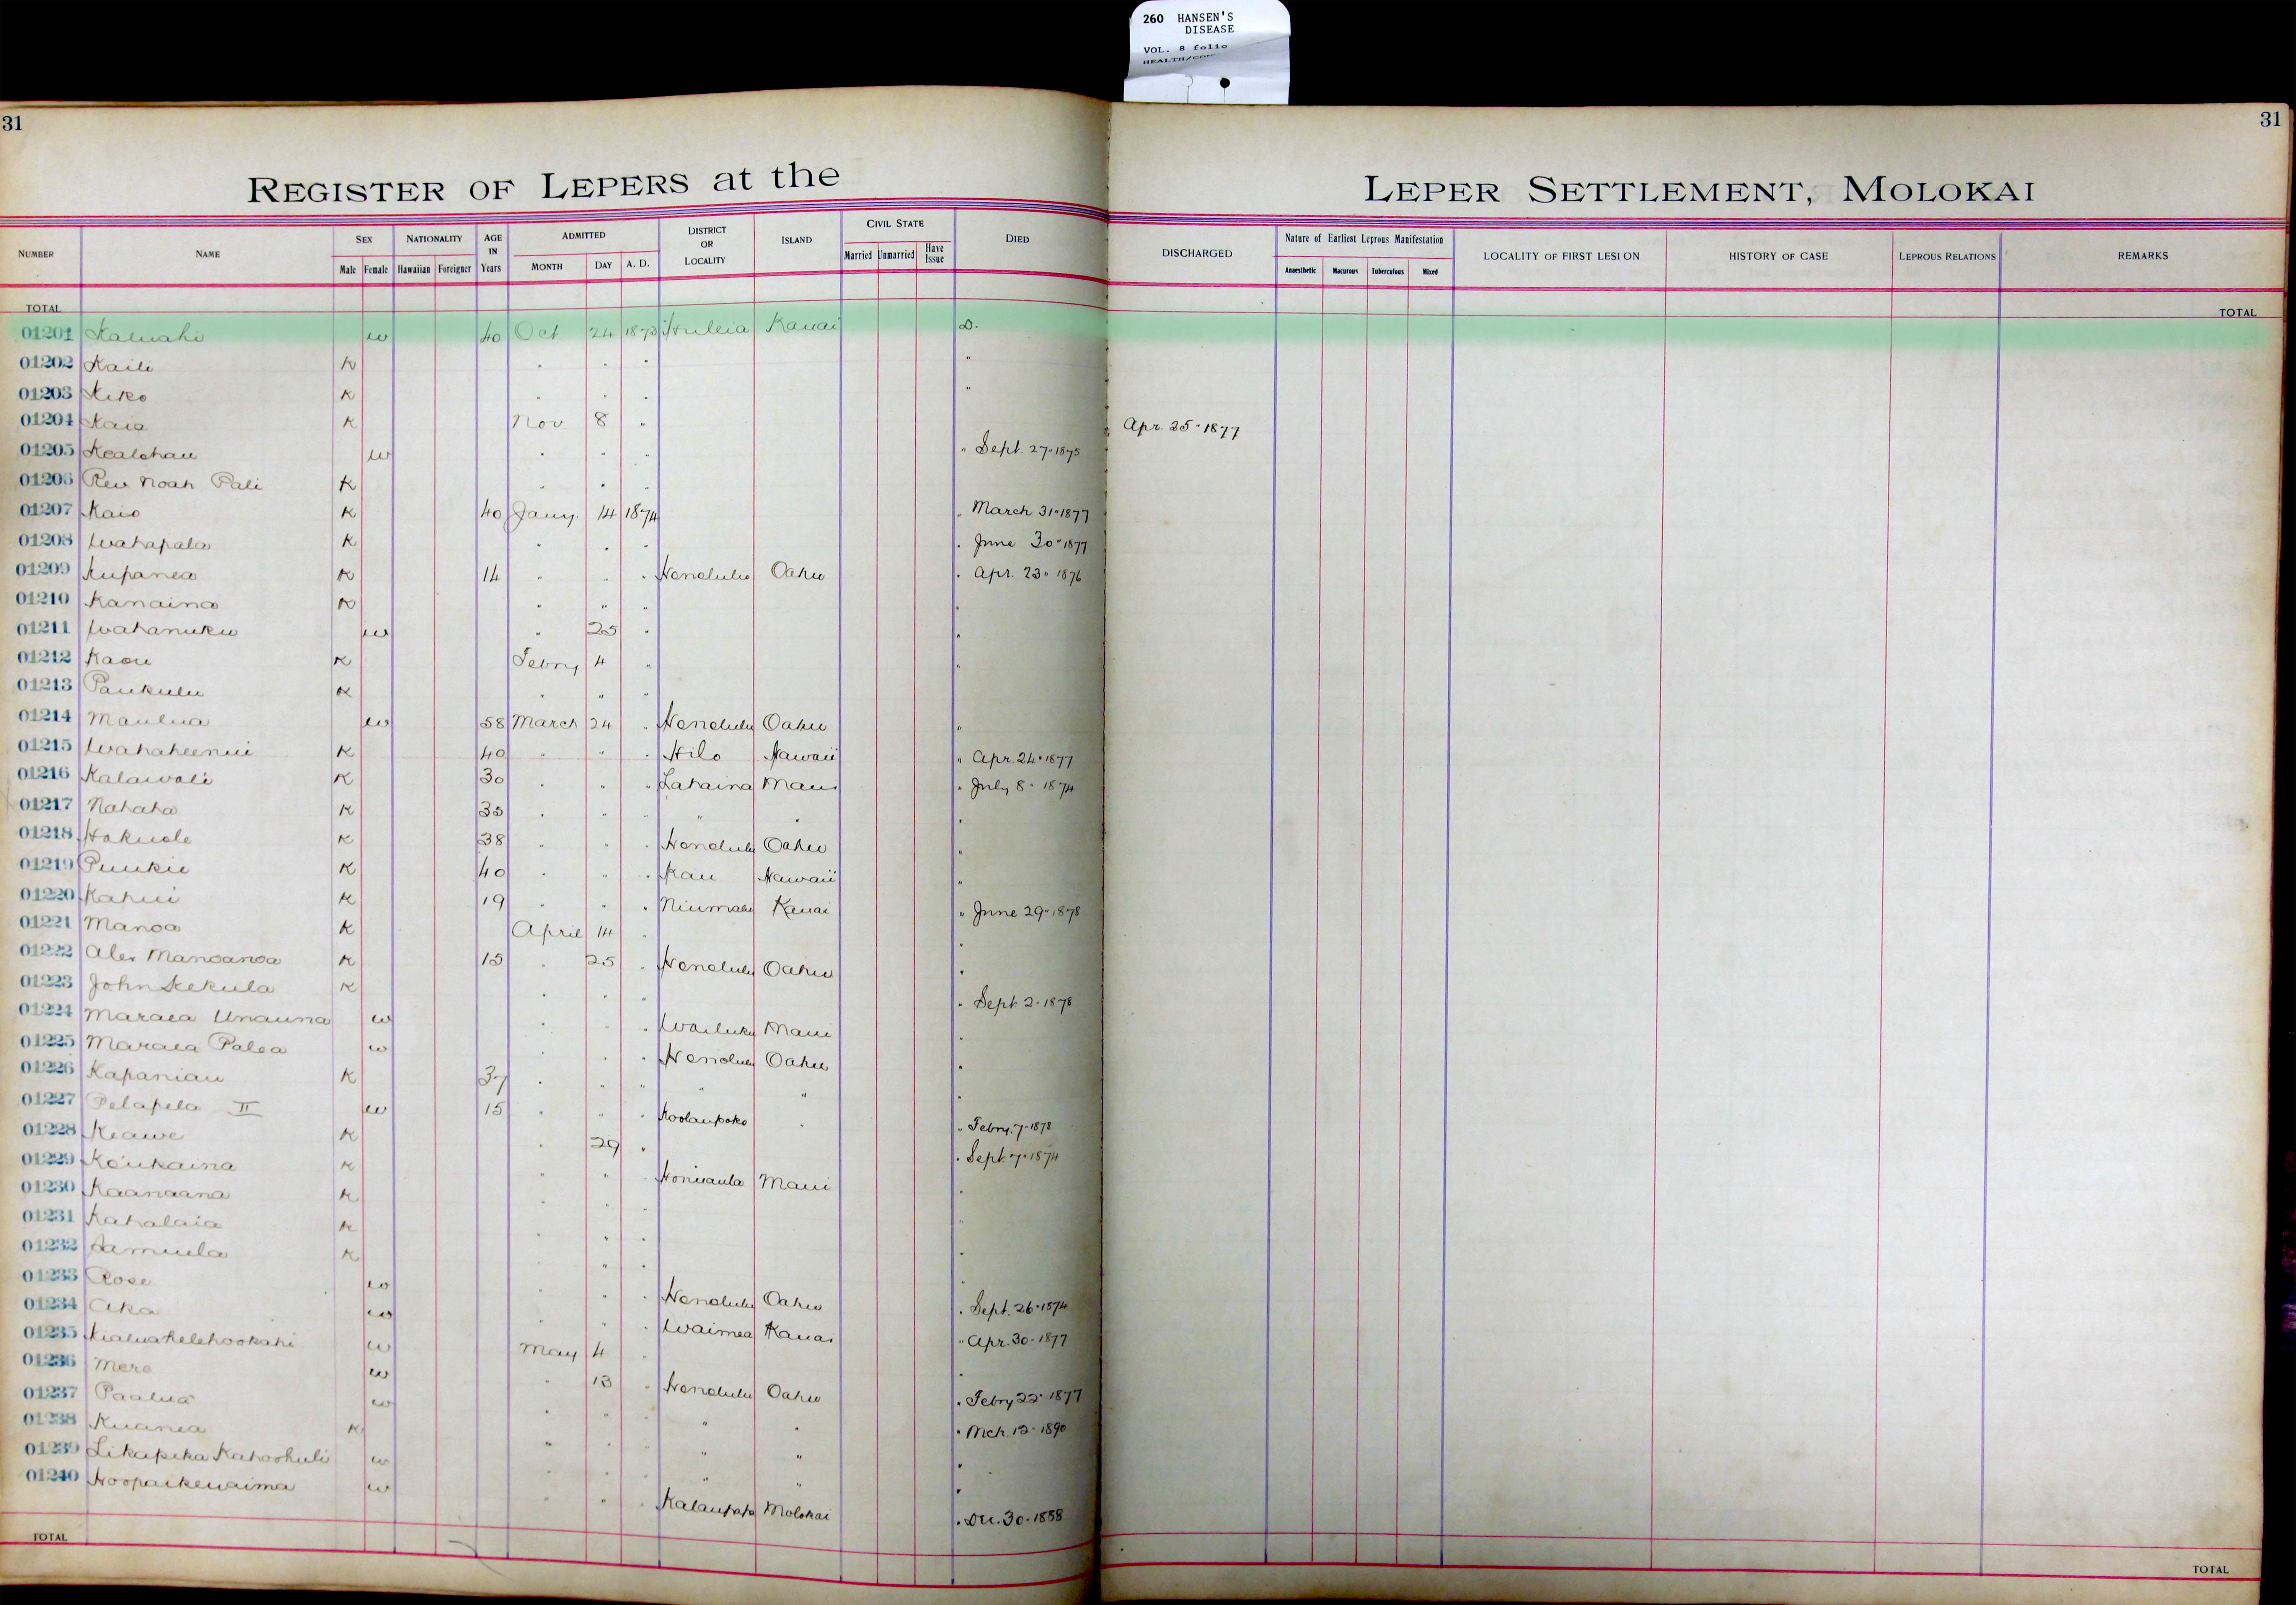 260 HANSEN'S
DISEASE
VOL. 8 folio
31
31
REGISTER OF LEPERS at the
LEPER SETTLEMENT, MOLOKAI
NUMBER NAME SEX Male Female NATIONALITY Hawaiian Foreigner AGE IN Years ADMITTED MONTH DAY A. D. DISTRICT OR LOCALITY ISLAND CIVIL STATE Married Unmarried Have Issue DIED
DISCHARGED Nature of Earliest Leprous Manifestation Anaesthetic Macurous Tuberculous Mixed LOCALITY OF FIRST LESION HISTORY OF CASE LEPROUS RELATIONS REMARKS
TOTAL TOTAL
01201 Kaluahi w 40 Oct 24 1873 Huleia Kauai D.
01202 Kaili K " " " "
01203 Keko K " " " "
01204 Kaia K Nov. 8 " " Apr. 25" 1877
01205 Kealohau w " " " " Sept. 27" 1875
01206 Rev Noah Pali K " " "
01207 Kaio K 40 Jany. 14 1874 " March 31" 1877
01208 Wahapala K " " " " June 30" 1877
01209 Kupanea K 14 " " " Honolulu Oahu " Apr. 23" 1876
01210 Kanaina K " " " "
01211 Wahanuku w " 25 " "
01212 Kaou K Febry 4 " "
01213 Paukulu K " " "
01214 Maulua w 58 March 24 " Honolulu Oahu "
01215 Wahaheenui K 40 " " " Hilo Hawaii " Apr. 24" 1877
01216 Kalawali K 30 " " " Lahaina Maui " July 8" 1874
01217 Nahaha K 35 " " " " " "
01218 Hokuole K 38 " " " Honolulu Oahu "
01219 Puukii K 40 " " " Kau Hawaii "
01220 Kahui K 19 " " " Niumalu Kauai " June 29" 1878
01221 Manoa K April 14 " "
01222 Alex Manoanoa K 15 " 25 " Honolulu Oahu "
01223 John Kekula K " " " " Sept. 2" 1878
01224 Maraea Unauna w " " " Wailuku Maui "
01225 Maraea Palea w " " " Honolulu Oahu "
01226 Kapaniau K 37 " " " " " "
01227 Pelapela II w 15 " " " Koolaupoko " " Febry. 7" 1878
01228 Keawe K " 29 " " Sept. 7" 1874
01229 Koukaina K " " " Honuaula Maui "
01230 Kaanaana K " " " "
01231 Kahalaia K " " " "
01232 Samuela K " " " "
01233 Rose w " " " Honolulu Oahu " Sept. 26" 1874
01234 Aka w " " " Waimea Kauai " Apr. 30" 1877
01235 Kialuahelehookahi w May 4 " "
01236 Mere w " 13 " Honolulu Oahu " Febry 22" 1877
01237 Paalua w " " " " " " Mch. 12" 1890
01238 Kuanea K " " " " " "
01239 Likapeka Kahoohuli w " " " " " "
01240 Hoopaikewaima w " " " Kalaupapa Molokai " Dec. 30" 1888
TOTAL TOTAL